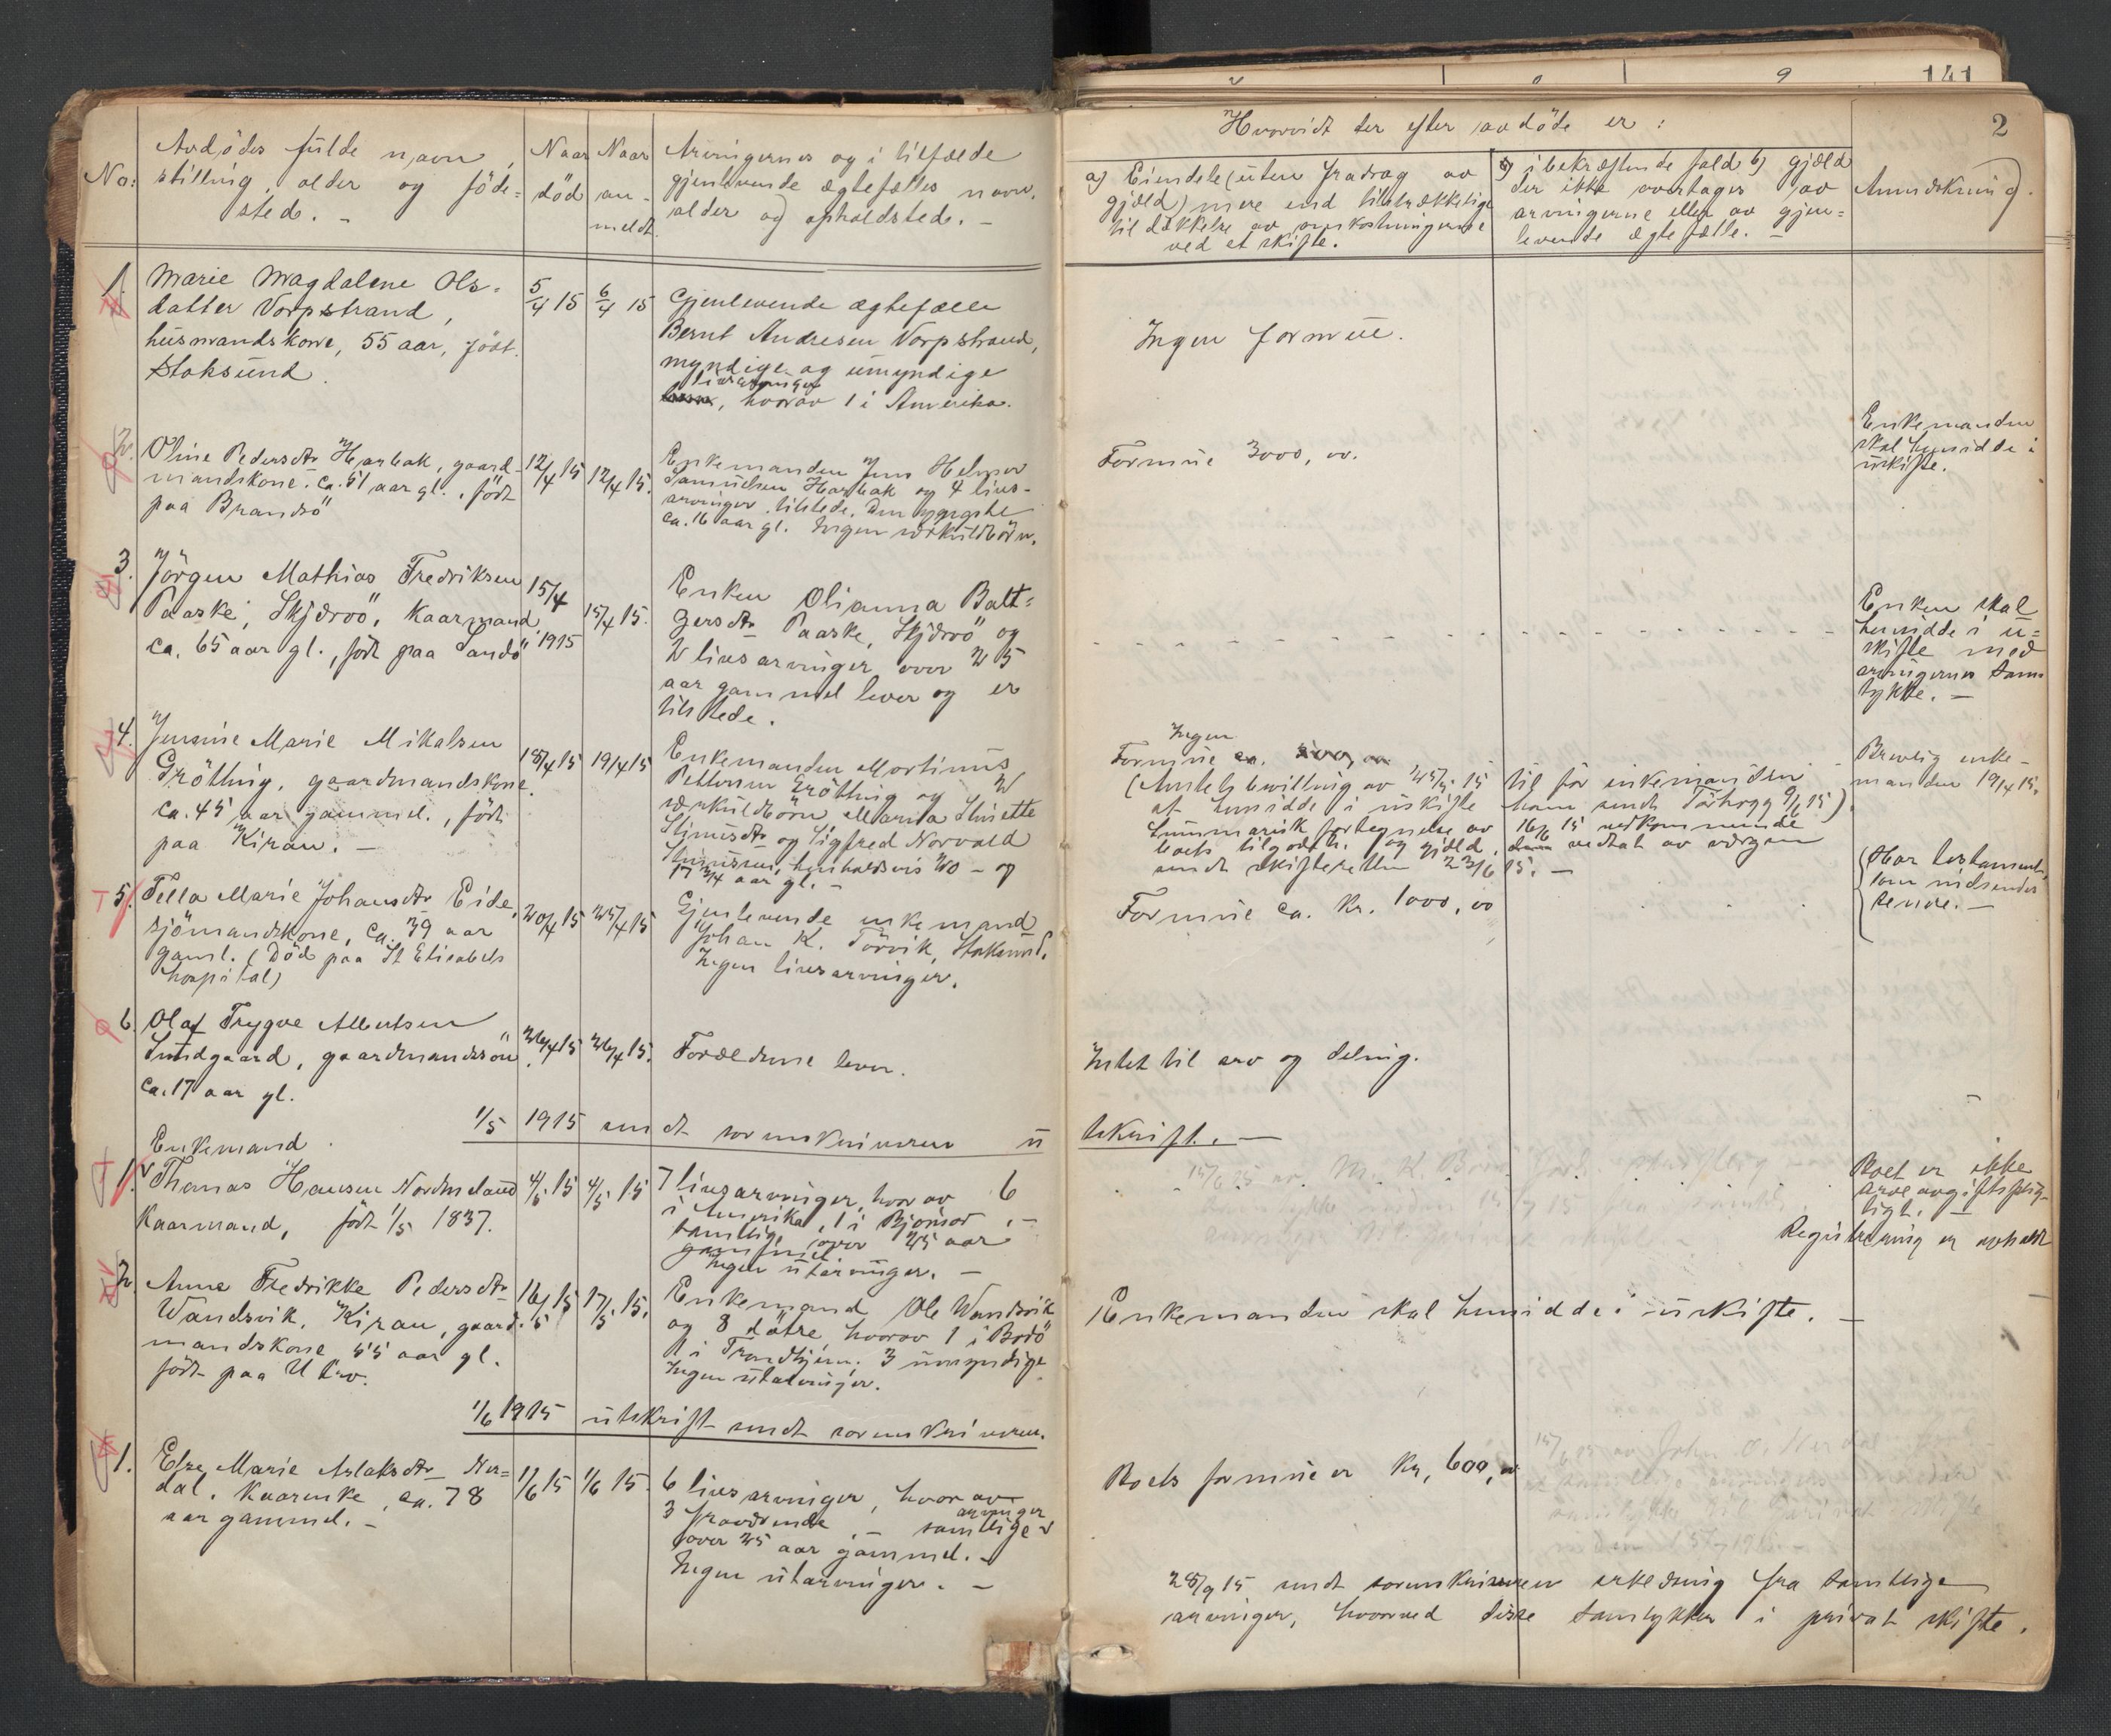 141
2
No:
Avdödes fulde navn,
stilling, alder og föde-
sted. -
Naar
död
Naar
an-
meldt.
Arvingernes og i tilfælde
gjenlevende ægtefælles navn,
alder og opholdsted. -
Hvorvidt der efter avdöde er:
a) Eiendele (uten fradrag av
gjæld) mere end tilstrækkelige
til dækkelse av omkostningerne
ved et skifte.
b) i bekræftende fald b) gjæld
der ikke overtages av
arvingerne eller av gjen-
levende ægtefælle. -
Anmerkning.
1. Marie Magdalene Ols-
datter Vorpstrand,
husmandskone, 55 aar, födt
Stoksund.
5/4 15
6/4 15
Gjenlevende ægtefælle
Bernt Andresen Vorpstrand,
myndige og umyndige
livsarvinger
, hvorav 1 i Amerika.
Ingen formue.
2. Oline Pedersdtr Harbak, gaard-
mandskone. ca. 51 aar gl., födt
paa Brandsö
12/4 15
12/4 15.
Enkemanden Jens Helmer
Samuelsen Harbak og 4 livs-
arvinger tilstede. Den yngste
ca. 16 aar gl. Ingen særkuldbörn.
Formue 3000,00.
Enkemanden
skal hensidde i
uskifte.
3. Jörgen Mathias Fredriksen
Paaske, Skjærvö, Kaarmand
ca. 65 aar gl., födt paa Sandö
15/4
1915
15/4 15.
Enken Olianna Balt-
zersdtr Paaske, Skjærvö og
2 livsarvinger over 25
aar gammel lever og er
tilstede.
Enken skal
hensidde i u-
skifte med
arvingernes sam
tykke. -
4. Jensine Marie Mikalsen
Grötting, gaardmandskone,
ca. 45 aar gammel, födt
paa Kiran. -
18/4 15
19/4 15
Enkemanden Mortinus
Pettersen Grötting og 2
særkuldbörn Marna Stinette
Stinusdtr og Sigfred Norvald
Stinussen, henholdsvis 20 - og
17 3/4 aar gl. -
Ingen
Formue ca.
(Amtets bevilling av 25/5 15 til for enkemanden
at hensidde i uskifte ham sendt Törhogg 9/6 15).
Summarisk fortegnelse av 16/6 15 vedkommende
boets tilgodeh. og gjæld, vedtat av værgen
sendt skifteretten 23/6 15. -
Brevlig enke-
manden 19/4 15.
5. Tella Marie Johansdtr Eide,
sjömandskone, ca. 39 aar
gaml. (Död paa St Elisabeths
hospital)
20/4 15
25/4 15
Gjenlevende enkemand
Johan K. Törvik, Stoksund.
Ingen livsarvinger.
Formue ca. kr. 1000,00
Har testament,
som nedsendes
senere. -
6. Olaf Trygve Albertsen
Sundgaard, gaardmandssön
ca. 17 aar gl.
26/4 15
26/4 15.
Forældrene lever.
Intet til arv og deling.
1/5 1915 sendt sorenskriveren utskrift. -
Enkemand
1. Thomas Hansen Nordmeland
Kaarmand, födt 1/5 1837.
4/5 15
4/5 15
7 livsarvinger, hvorav 6
i Amerika, 1 i Bjönör. -
samtlige over 25 aar
gammel
Ingen utarvinger. -
Boet er ikke
arveavgiftsplig-
tigt. -
Registrering er avholdt
2. Anna Fredrikke Pedersdtr
Wandsvik, Kiran, gaard-
mandskone 55 aar gl.
födt paa
16/5 15
17/5 15.
Enkemand Ole Wandsvik
og 8 dötre, hvorav 1 i Bodö
1 i Trondhjem. 3 umyndige
Ingen utarvinger.
Enkemanden skal hensidde i uskifte. -
1/6 1915 utskrift sendt sorenskriveren.
1. Else Marie Aslaksdtr Ner-
dal. Kaarenke, ca. 78
aar gammel. -
1/6 15
1/6 15.
6 livsarvinger, hvorav
3 fraværende. - samtlige arvinger
over 25 aar gammel. -
Ingen utarvinger. -
Boets formue er kr. 600,00
28/9 15 sendt sorenskriveren erklæring fra samtlige
arvinger, hvorved disse samtykker i privat skifte.